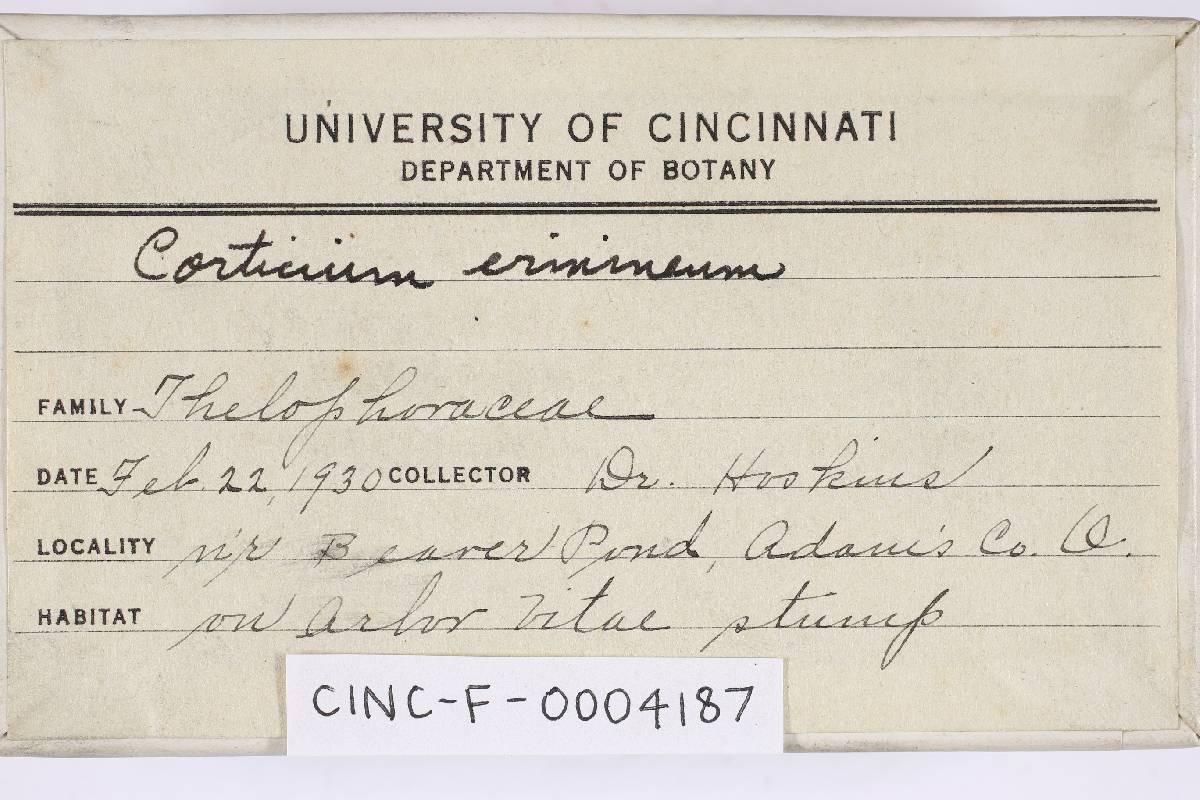 UNIVERSITY OF CINCINNATI
DEPARTMENT OF BOTANY
Corticium erimineum
FAMILY Thelophoraceae
DATE Feb. 22, 1930 COLLECTOR Dr. Hoskins
LOCALITY n'r Beaver Pond, Adams Co. O.
HABITAT on Arbor Vitae stump
CINC-F-0004187